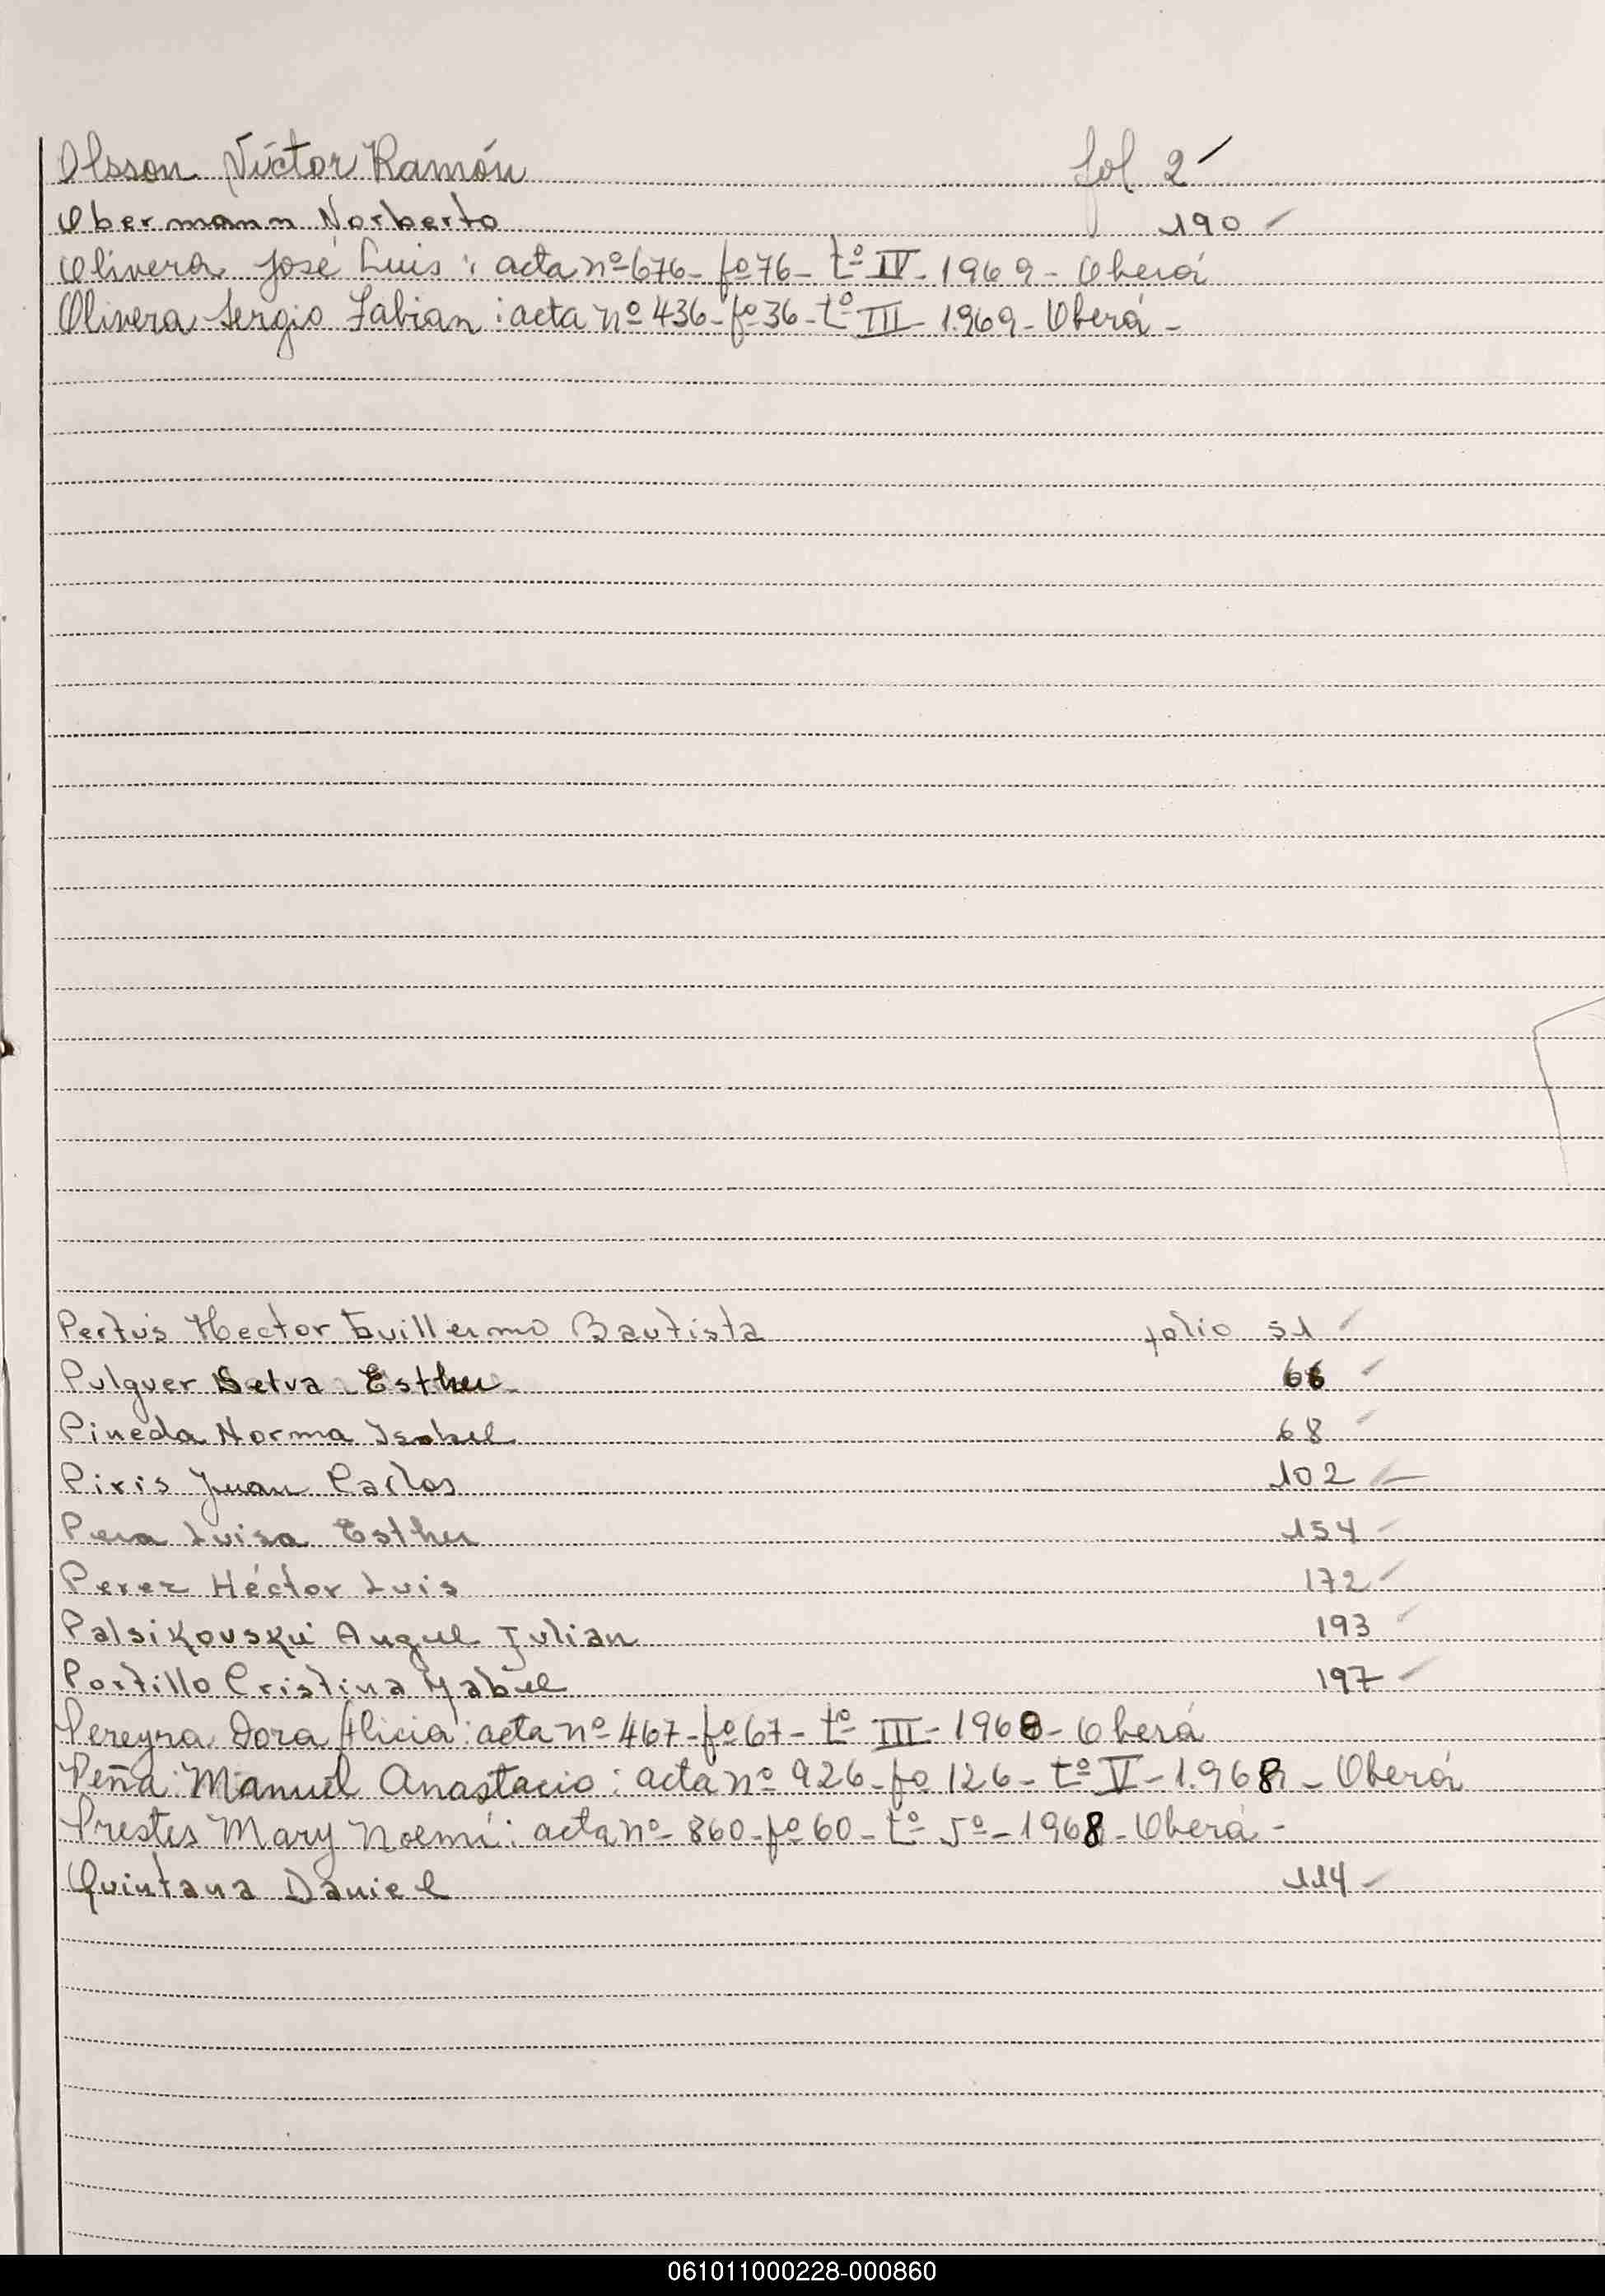 Olsson Víctor Ramón fol 2
Obermann Norberto 190
Olivera José Luis: acta nº 676- fº 76- tº IV- 1969- Oberá
Olivera Sergio Fabian: acta nº 436- fº 36- tº III- 1.969- Oberá-
Pertus Hector Guillermo Bautista folio 51
Pulguer Selva Esther 66
Pineda Norma Isabel 68
Piris Juan Carlos 102
Pera Luisa Esther 154
Perez Héctor Luis 172
Palsikovski Angel Julian 193
Portillo Cristina Mabel 197
Pereyra Dora Alicia: acta nº 467- fº 67- tº III- 1968- Oberá
Peña Manuel Anastacio: acta nº 926- fº 126- tº V- 1.968- Oberá
Prestes Mary Noemí: acta nº 860- fº 60- tº 5º- 1968- Oberá-
Quintana Daniel 114
061011000228-000860